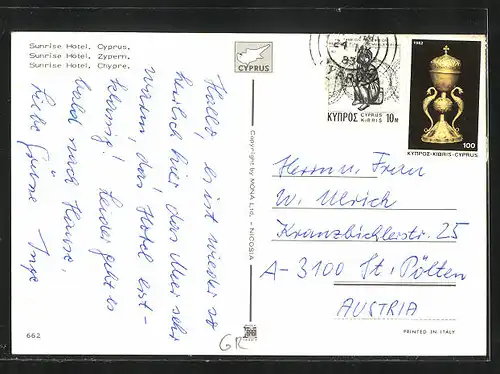 Sunrise Hotel, Cyprus.
Sunrise Hotel, Zypern.
Sunrise Hotel, Chypre.
Hallo, es ist wieder so
herrlich hier das Meer sehr
warm, das Hotel erst-
klassig! Leider geht es
bald nach Hause.
Liebe Grüsse Inge
662
CYPRUS
Copyright by MONA Ltd., - NICOSIA
GR
24
83
ΚΥΠΡΟΣ CYPRUS KIBRIS 10 M
1982
100
ΚΥΠΡΟΣ-KIBRIS-CYPRUS
Herrn u. Frau
W. Ulrich
Kranzbichlerstr. 25
A-3100 St. Pölten
AUSTRIA
PRINTED IN ITALY